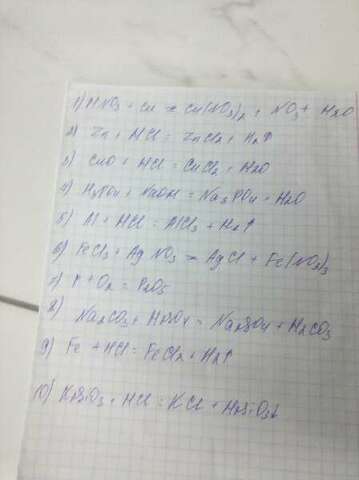 1) HNO3 + Cu = Cu(NO3)2 + NO3 + H2O
2) Zn + HCl = ZnCl2 + H2↑
3) CuO + HCl = CuCl2 + H2O
4) H3PO4 + NaOH = Na3PO4 + H2O
5) Al + HCl = AlCl3 + H2↑
6) FeCl3 + AgNO3 = AgCl + Fe(NO3)3
7) P + O2 = P2O5
8) Na2CO3 + H2SO4 = Na2SO4 + H2CO3
9) Fe + HCl = FeCl2 + H2↑
10) K2SiO3 + HCl = KCl + H2SiO3↓